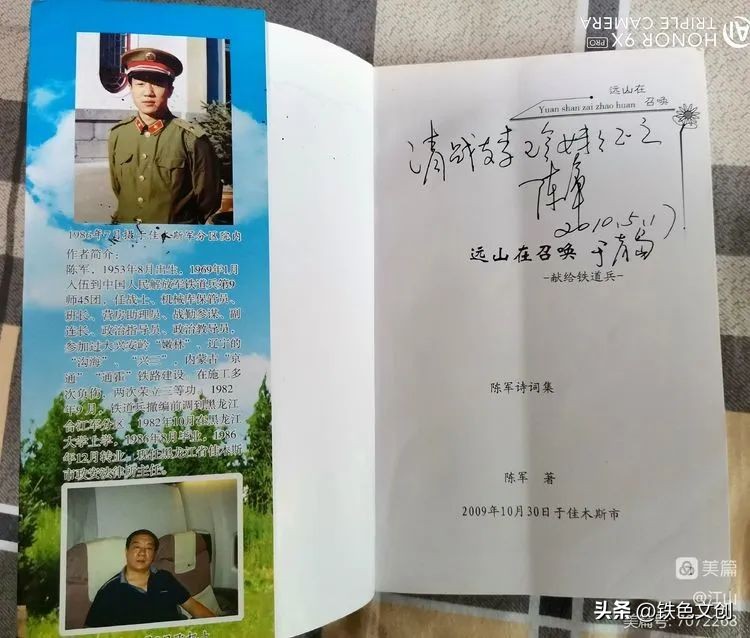 1986年7月摄于佳木斯军分区院内
作者简介：
陈军，1953年8月出生，1969年1月
入伍到中国人民解放军铁道兵第9
师45团，任战士、机械库保管员、
班长、营房助理员、战勤参谋、副
连长、政治指导员、政治教导员，
参加过大兴安岭“嫩林”、辽宁的
“沟海”、“兴三”，内蒙古“京
通”“通霍”铁路建设，在施工多
次负伤，两次荣立三等功。1982
年9月，铁道兵撤编前调到黑龙江
合江军分区，1982年10月在黑龙江
大学上学，1986年8月毕业，1986
年12月转业，现任黑龙江省佳木斯
市政安法律所主任。
HONOR 9X PRO
TRIPLE CAMERA
AI
远山在
Yuan shan zai zhao huan
召唤
清战友李玲妹指正
陈军
2010.5.17
于青岛
远山在召唤
-献给铁道兵-
陈军诗词集
陈军 著
2009年10月30日于佳木斯市
美篇
@江山
美篇号:7072268
头条 @铁色文创